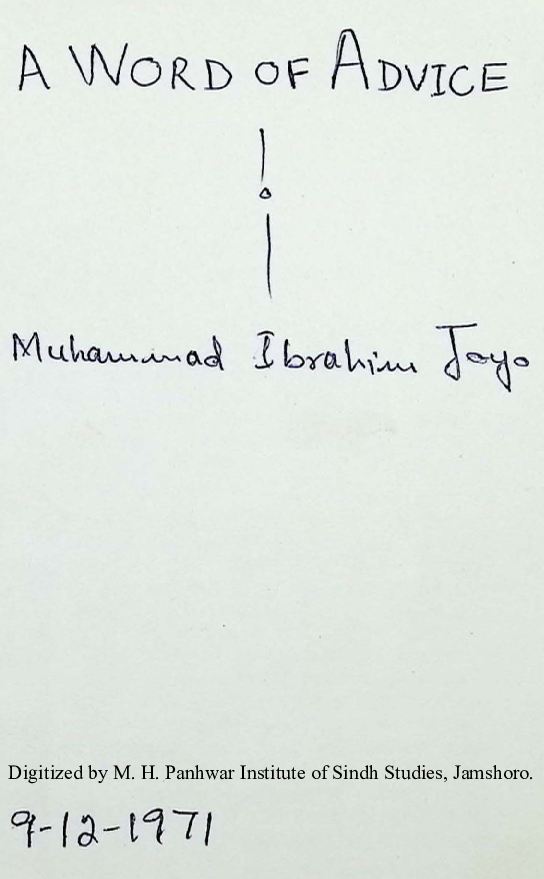 A WORD OF ADVICE
Muhammad Ibrahim Joyo
Digitized by M. H. Panhwar Institute of Sindh Studies, Jamshoro.
9-12-1971